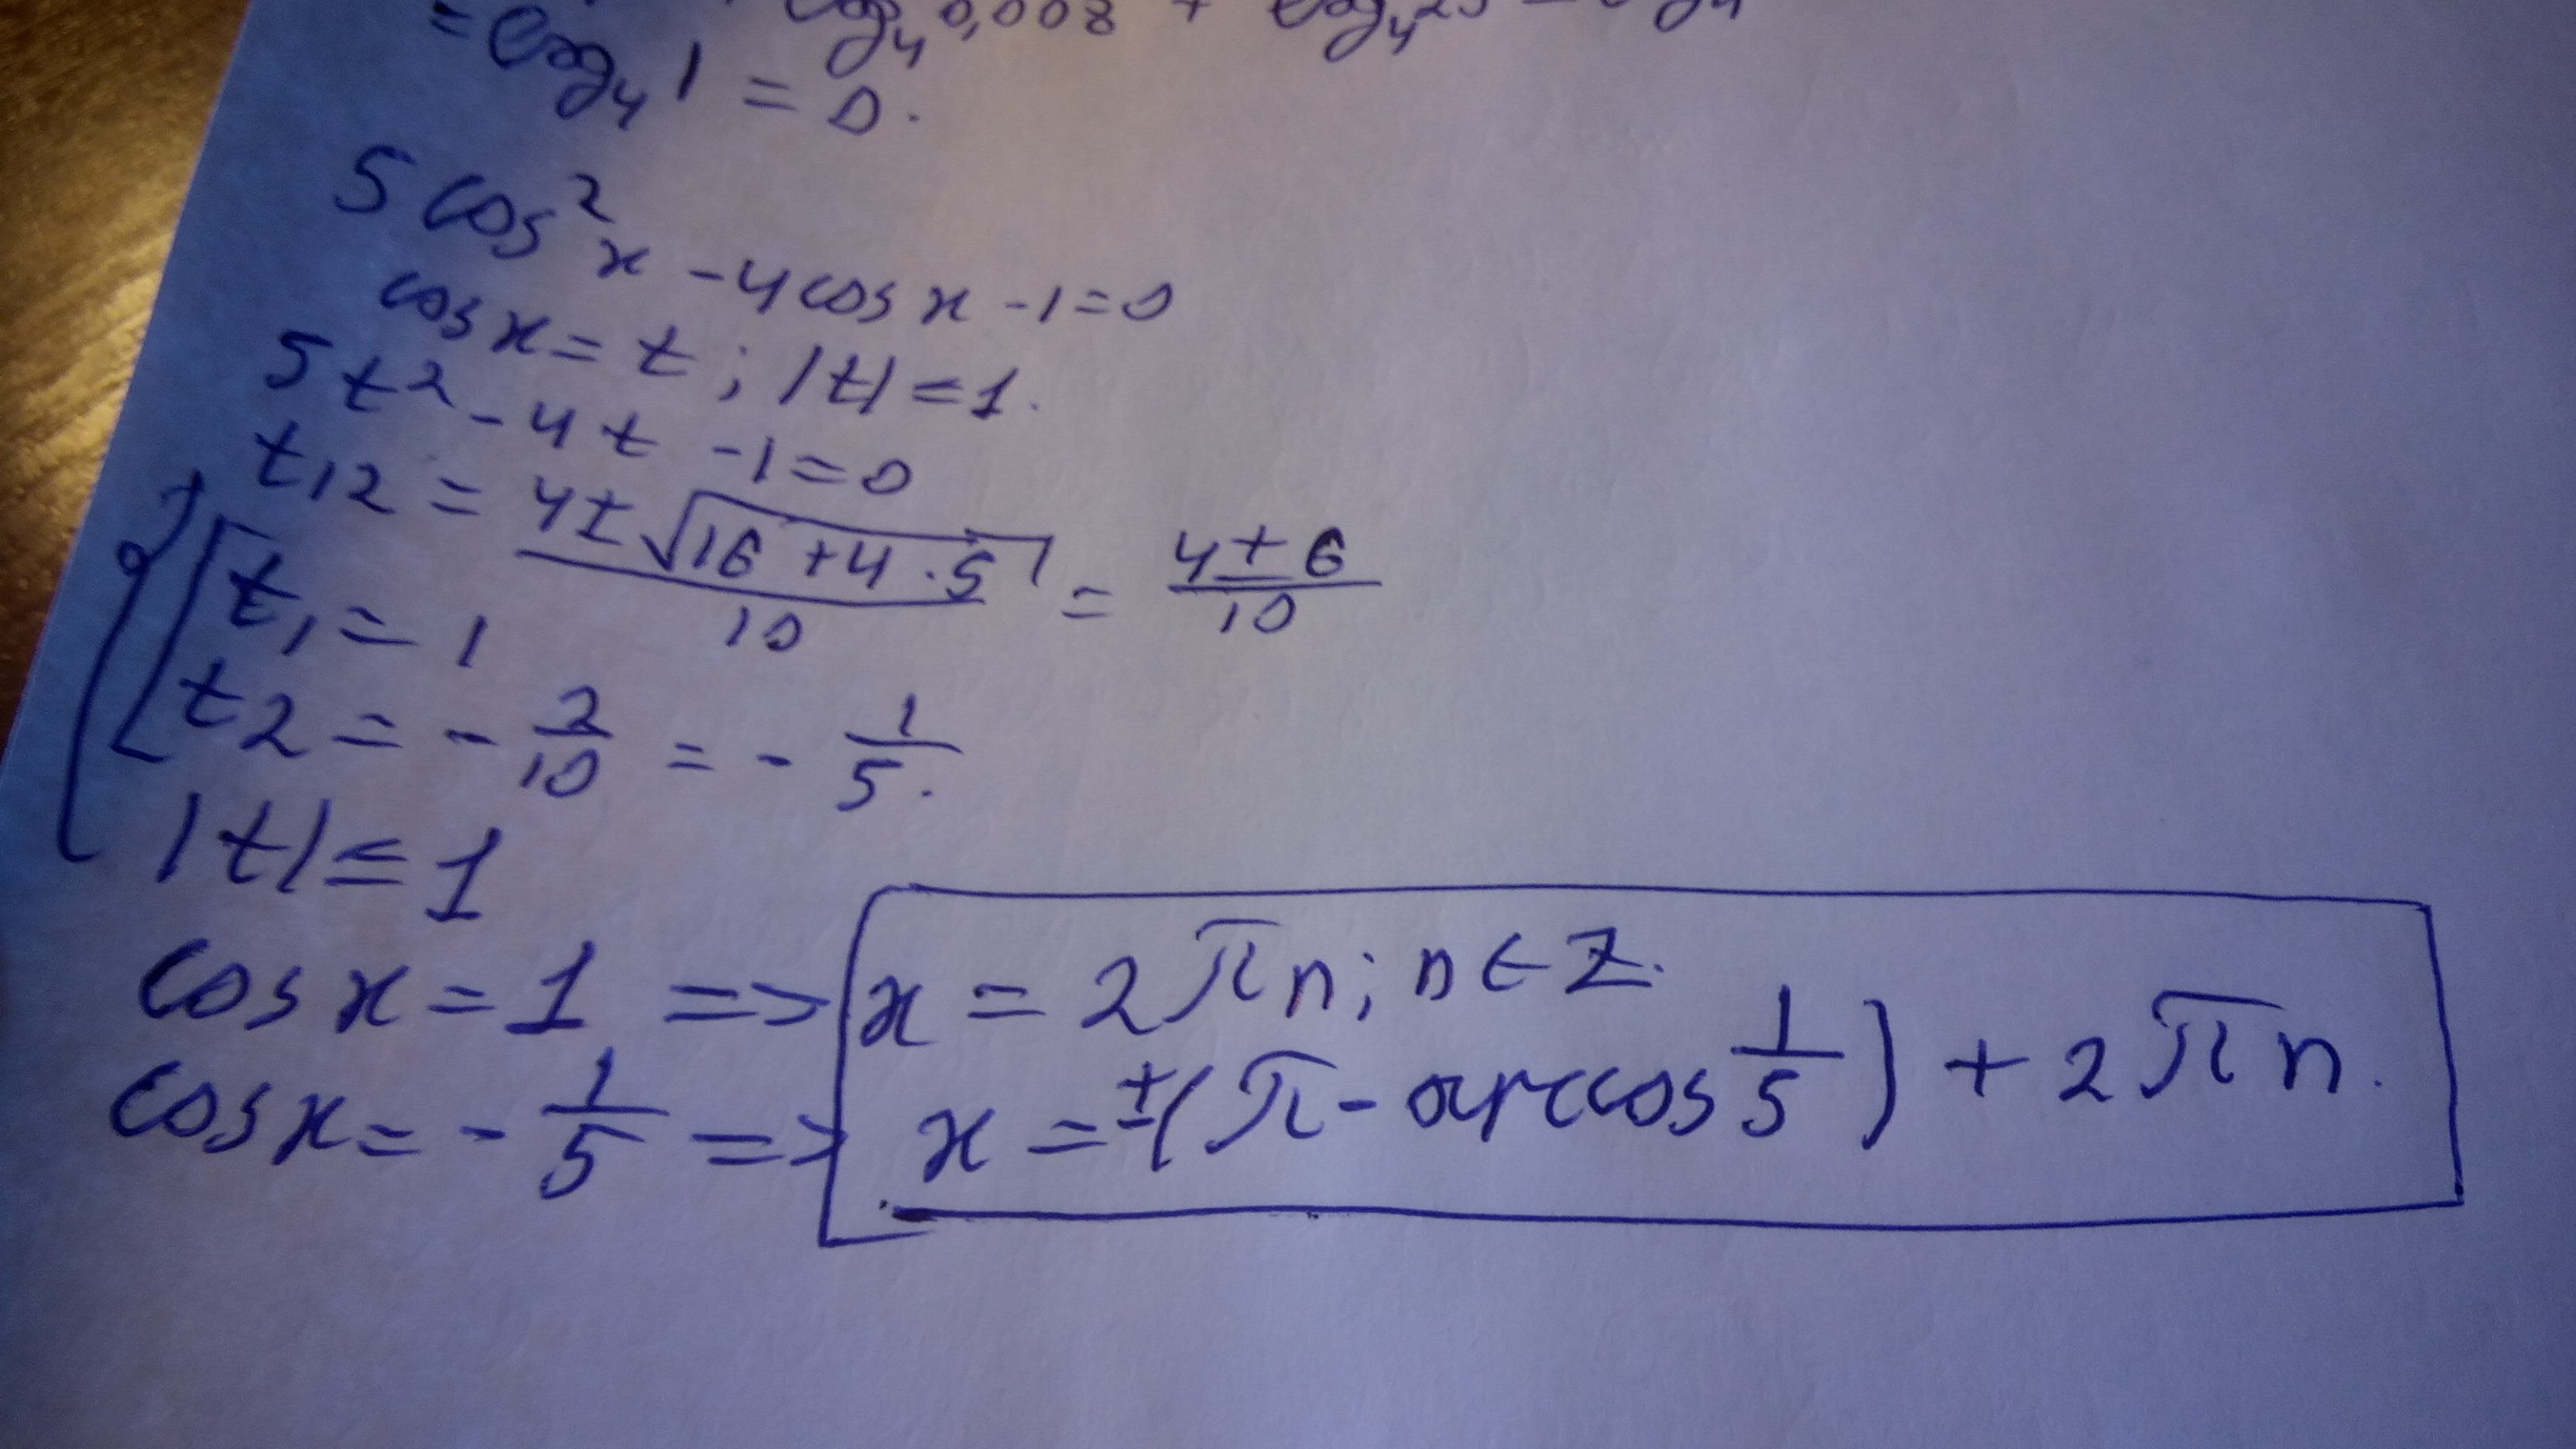 log₄ 0,008 + log₄ 25
= log₄ 1 = 0.
5 cos² x - 4 cos x - 1 = 0
cos x = t ; |t| = 1.
5t² - 4t - 1 = 0
t₁₂ = (4 ± √(16 + 4 · 5))/10 = (4 ± 6)/10
{ [ t₁ = 1
t₂ = - 2/10 = - 1/5.
|t| ≤ 1
cos x = 1 => x = 2πn; n ∈ Z.
cos x = - 1/5 => x = ±(π - arccos 1/5) + 2πn.